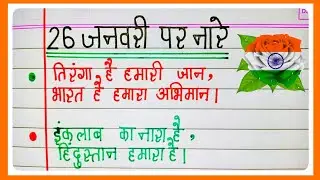 26 जनवरी पर नारे
तिरंगा है हमारी जान,
भारत है हमारा अभिमान।
इंकलाब का नारा है,
हिंदुस्तान हमारा है।